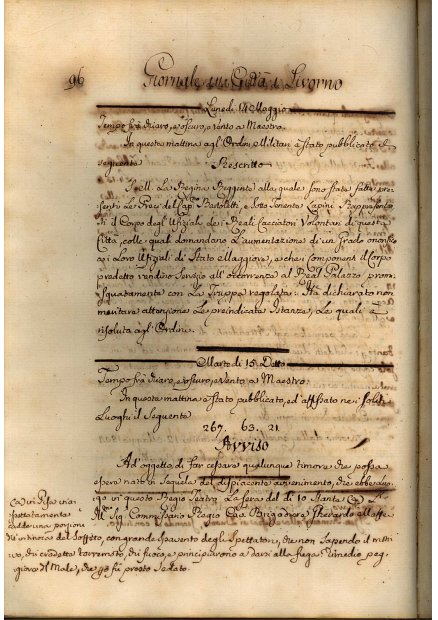 96
Giornale della Città di Livorno
Lunedì 14 Maggio
Tempo frà chiaro, e oscuro, e vento a Maestro.
In questa mattina agl' Ordini Militari è stato pubblicato il
seguente Rescritto
S. M. La Regina Reggente alla quale sono state fatte pre-
senti Le Preci del Cap. Bartoletti, e Sotto Tenente Lapini Rapp
il Corpo degl' Ufiziali de i Reali Cacciatori Volontari di questa
Città, colle quali domandano L'aumentazione di un Grado
ai Loro Ufiziali di Stato Maggiore, e che i Componenti il Corpo
predetto rendino Servizio all' occorrenza al Real Palazzo prom
squatamente con La Truppa regolata: Ha dichiarato non
meritare attenzione Le preindicate Istanze, Le quali à
risoluta agl' Ordini.
Martedì 15. Detto
Tempo frà chiaro, e oscuro, e Vento a Maestro:
In questa mattina è stato pubblicato, ed affissato nei soliti
Luoghi il Seguente
267. 63. 21.
Avviso
Ad oggetto di far cessare qualunque timore che possa
essere nato in Sequela del dispiacente avvenimento, che ebbe luo-
go in questo Regio Teatro La Sera del dì 10 Stante (a) Il
Sig. Commissario Regio Cav. Brigadiere Gherardo Maffei
(a) In
aspettatamente
cadde una porzione
d'intonaco del Soffitto, con grande spavento degli Spettatori, che non sapendo il moti
vo, chi credette terremoto, chi fuoco, e principiarono a darsi alla fuga rimedio peg-
giore del Male, che fu presto sedato.